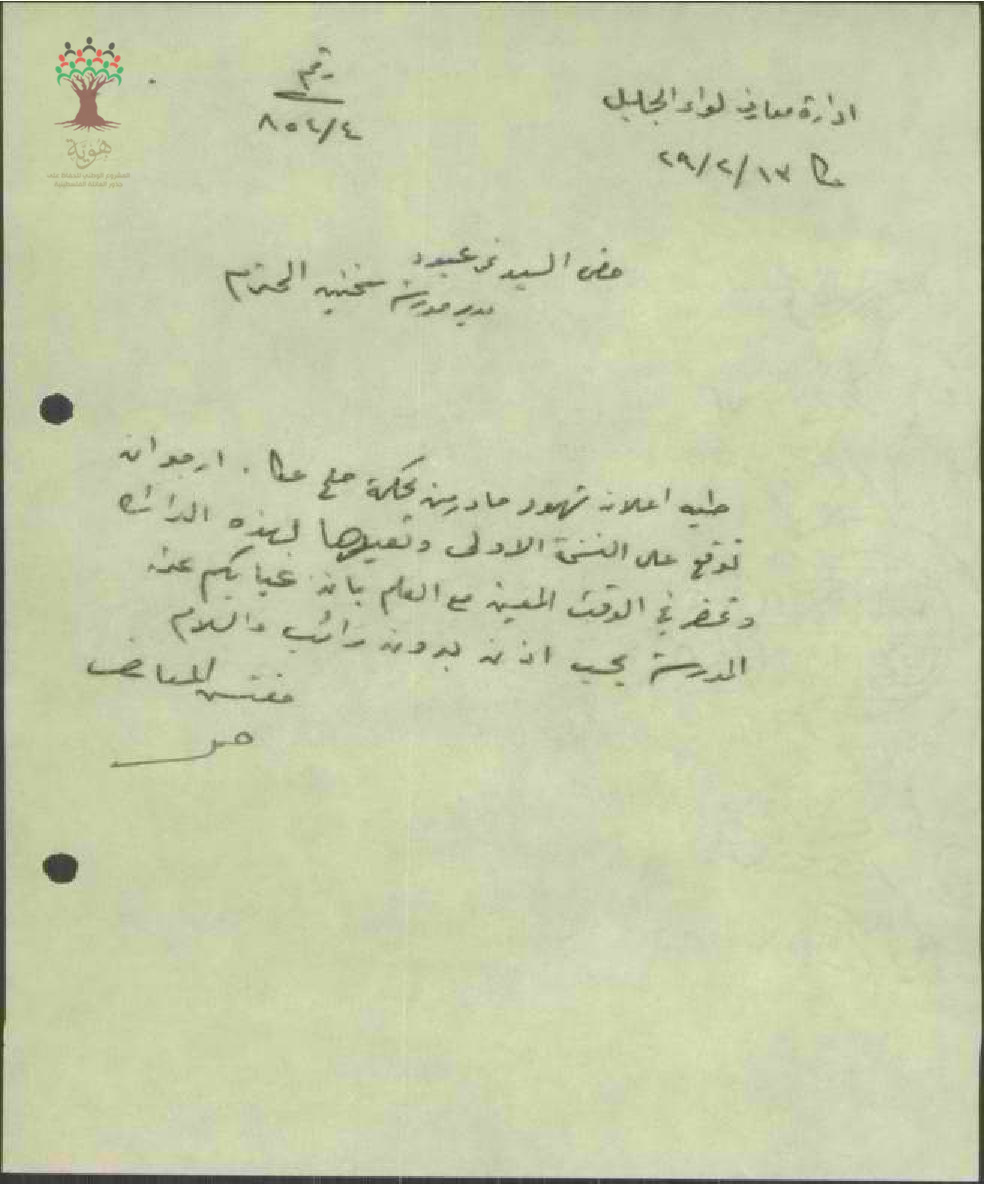 هوية
المشروع الوطني للحفاظ على
جذور العائلة الفلسطينية
رقم
٨٥٤/٤
ادارة معارف لواء الجليل
عكا ٢٩/٢/١٣
حضرة السيد نمر عبود
مدير مدرسة سخنين المحترم
طيه اعلان شهود صادر من محكمة صلح عكا . ارجو ان
توقع على النسخة الاولى وتعيدها لهذه الدائرة
وتحضر في الوقت المعين مع العلم بان غيابكم عن
المدرسة يحسب اذن بدون راتب والسلام
مفتش المعارف